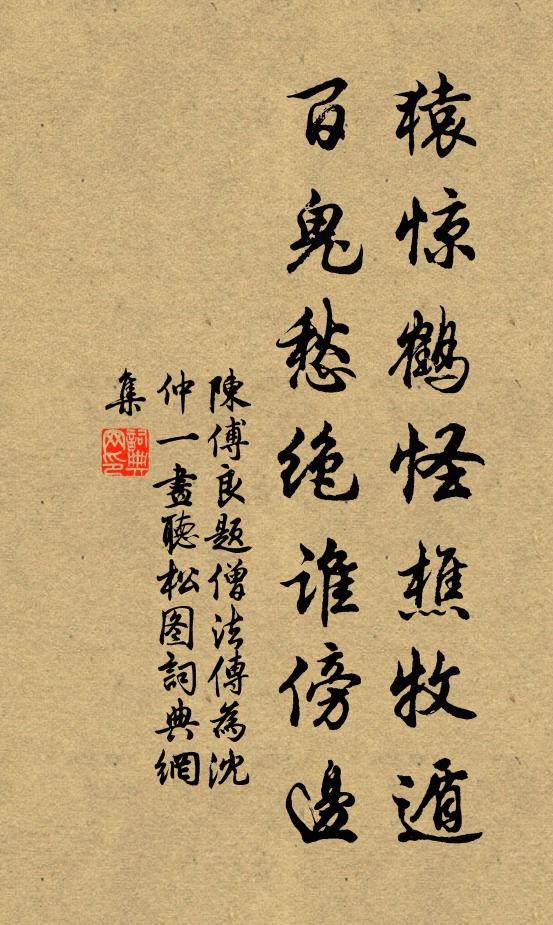 猿惊鶴怪樵牧遁
百鬼愁绝谁傍邊
陳傅良题僧法傳為沈
仲一畫聴松图詞典網
集
詞典网印